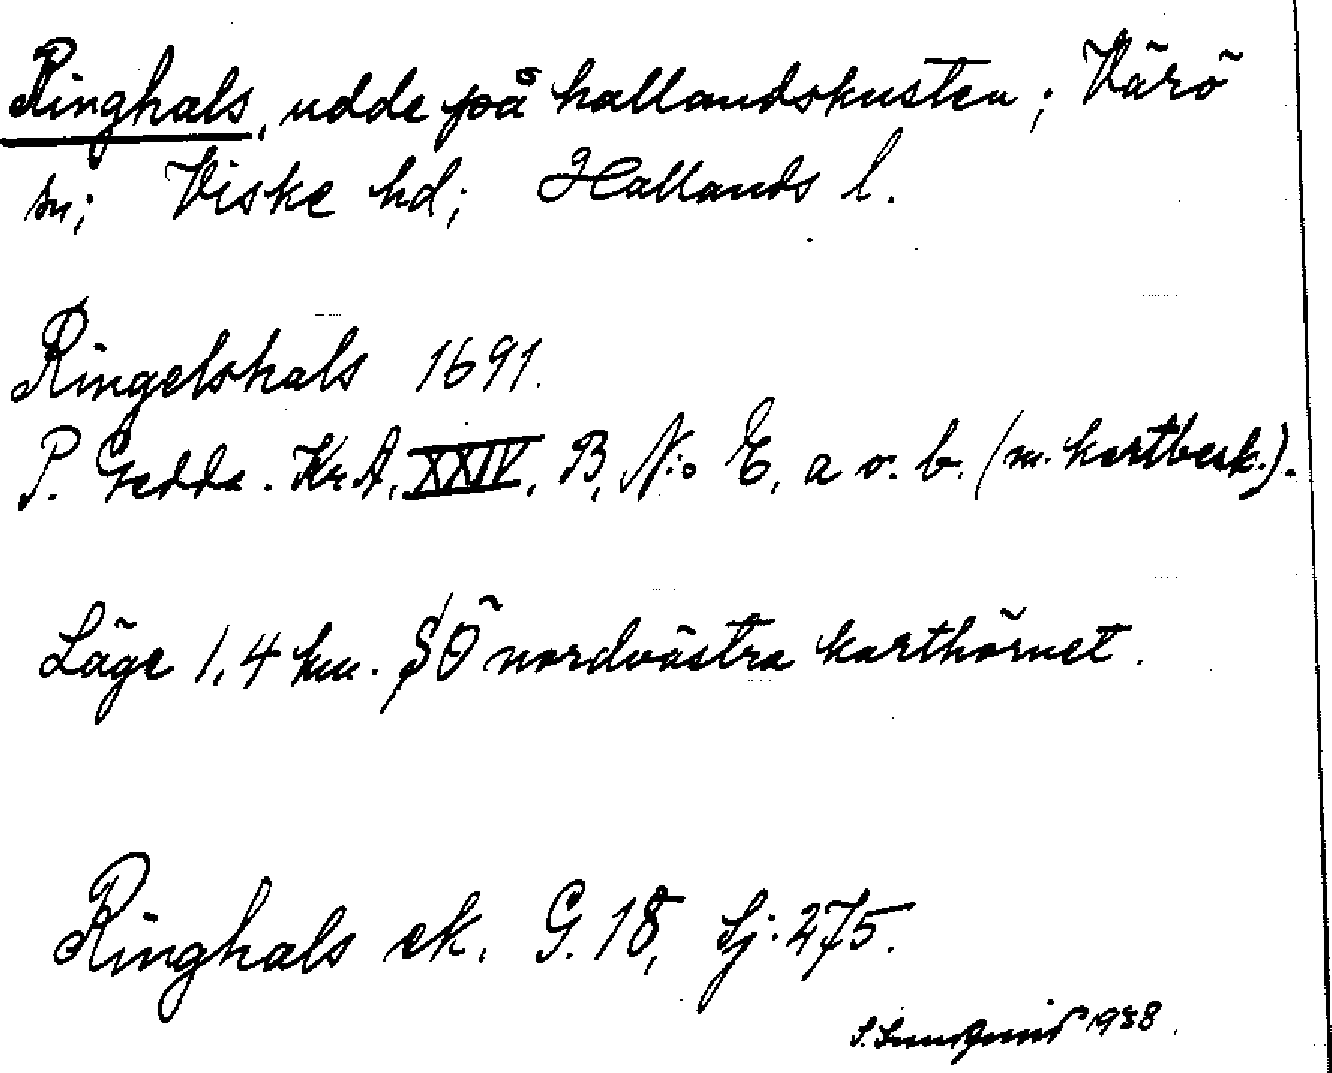 Ringhals, udde på hallandskusten; Värö
sn; Viske hd; Hallands l.
Ringelshals 1691.
P. Gedda. Kr.A, XXIV, B, N:o E, a o. b. (m. kartbesk.).
Läge 1,4 km. SÖ nordvästra karthörnet.
Ringhals ek. G. 18, Sj: 275.
1938.